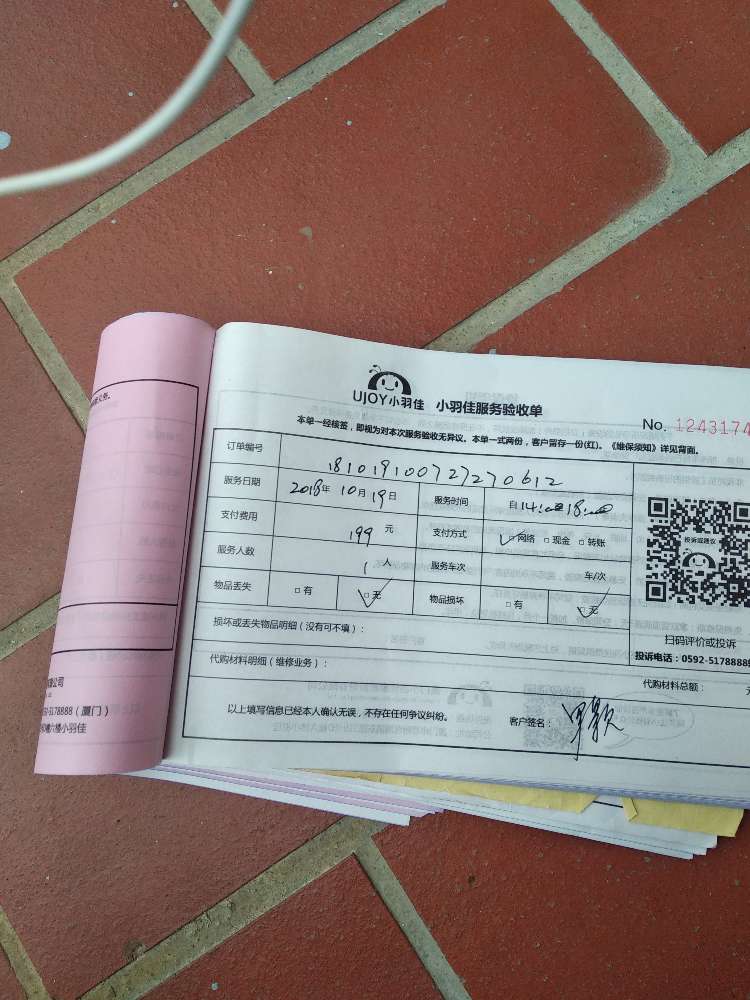 UJOY小羽佳 小羽佳服务验收单
No. 1243174
本单一经核签，即视为对本次服务验收无异议。本单一式两份，客户留存一份(红)。《维保须知》详见背面。
订单编号 181019100727270612
服务日期 2018年 10月 19日 服务时间 自14:00至18:00
支付费用 199 元 支付方式 网络 现金 转账
服务人数 1人 服务车次 车/次
物品丢失 有 无 物品损坏 有 无
投诉或建议
扫码评价或投诉
投诉电话：0592-5178888
损坏或丢失物品明细（没有可不填）：
代购材料明细（维修业务）： 代购材料总额：
以上填写信息已经本人确认无误，不存在任何争议纠纷。 客户签名：
公司
-5178888（厦门）
六楼小羽佳